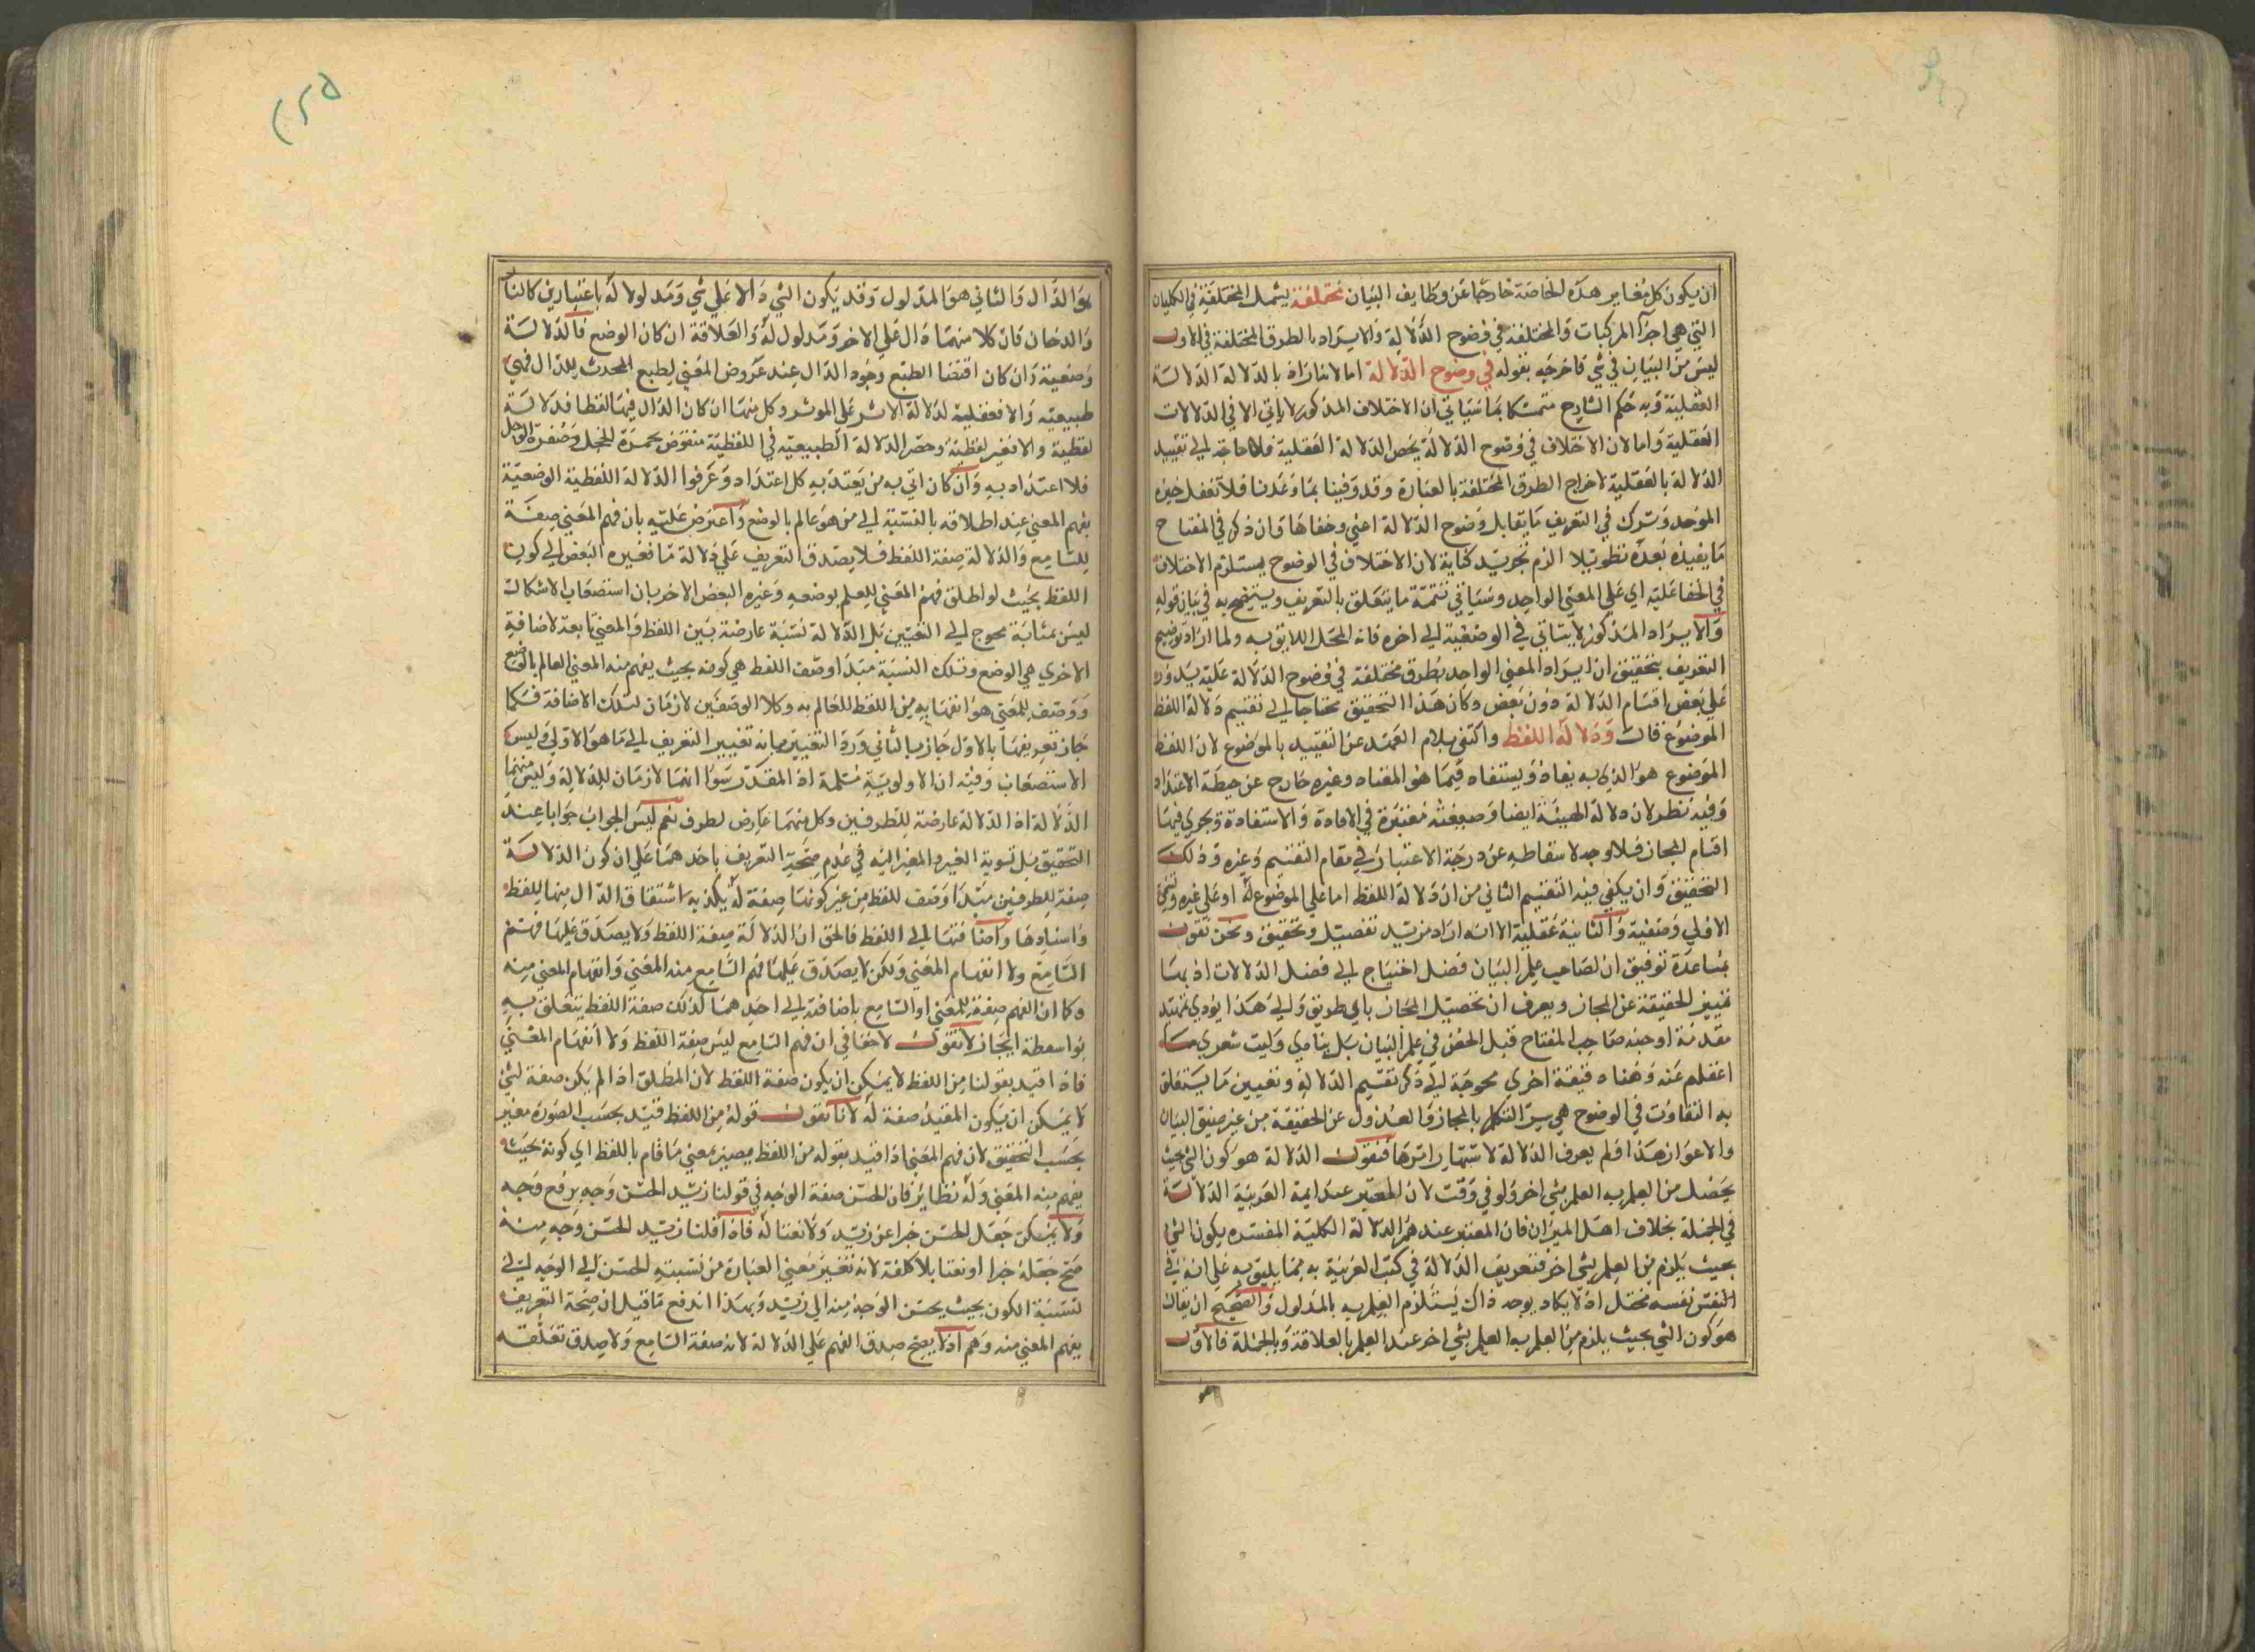 ان يكون كل مغاير هذه الخاصة خارجا عن وظايف البيان مختلفة يشمل المختلفة في الكليان
التي هي اجزآ المركبات والمختلفة في وضوح الدلالة والايراد بالطرق المختلفة في الاول
ليس من البيان في شي فاخرجه بقوله في وضوح الدلالة اما لانه اراد بالدلالة الدلالة
العقلية وبه حكم الشارح متمسكا بما سياتي ان الاختلاف المذكور لا ياتي الا في الدلالات
العقلية واما لان الاختلاف في وضوح الدلالة يخص الدلالة العقلية فلا حاجة الي تقييد
الدلالة بالعقلية لاخراج الطرق المختلفة بالعبارة وقد وفينا بما وعدنا فلا تغفل
الموحد وترك في التعريف ما يقابل وضوح الدلالة اعني وخفاها وان ذكر في المفتاح
ما يفيده بعده تطويلا الزم تجريد كتابه لان الاختلاف في الوضوح يستلزم الاختلاف
في الخفا عليه اي علي المعني الواحد وسياتي تتمة ما يتعلق بالتعريف ويتضح به في بيان قوله
والايراد المذكور لا يتاتي في الوضعية الي اخره فانه المحل اللايق به ولما اراد توضيح
التعريف بتحقيق ان ايراد المعني الواحد بطرق مختلفة في وضوح الدلالة عليه يدور
علي بعض اقسام الدلالة دون بعض وكان هذا التحقيق محتاجا الي تقسيم دلالة اللفظ
الموضوع قال ودلالة اللفظ واكتفي بلام العهد عن التقييد بالموضوع لان اللفظ
الموضوع هو الذي به يفاد ويستفاد فيما هو المعتاد وغيره خارج عن حيطة الاعتداد
وفيه نظر لان دلالة الهيئة ايضا وضعية معتبرة في الافادة والاستفادة ويجري فيها
اقسام المجاز فلا وجه لاسقاطه عن درجة الاعتبار في مقام التقسيم وغيره وذلك
التحقيق وان يكفي فيه التقسيم الثاني من ان دلالة اللفظ اما علي الموضوع له او علي غيره وتسمي
الاولي وضعية والثانية عقلية الا انه اراد مزيد تفصيل وتحقيق ونحن نقول
بمساعدة توفيق ان لصاحب علم البيان فضل احتياج الي فضل الدلالات اذ بها
تمييز الحقيقة عن المجاز ويعرف ان تحصيل المجاز باي طريق والي هذا يؤدي تمهيد
مقدمة اوجبه صاحب المفتاح قبل الخوض في علم البيان بل ينادي وليت شعري ما
اغفلهم عنه وهناه دقيقة اخري محوجة الي ذكر تقسيم الدلالة وتعيين ما يتعلق
به التفاوت في الوضوح هي سر التكلم بالمجاز والعدول عن الحقيقة من غير ضيق البيان
والاعواز هذا ولم يعرف الدلالة لاشتهار امرها فنقول الدلالة هو كون الشي بحيث
يحصل من العلم به العلم بشي اخر ولو في وقت لان المعتبر عند ايمة العربية الدلالة
في الجملة بخلاف اهل الميزان فان المعتبر عندهم الدلالة الكلية المفسرة بكون الشي
بحيث يلزم من العلم بشي اخر فتعريف الدلالة في كتب العربية به مما يليق به علي انه في
النفس نفسه مختل اذ لا يكاد يوجد دال يستلزم العلم به بالمدلول والصحيح ان يقال
هو كون الشي بحيث يلزم من العلم به العلم بشي اخر عند العلم بالعلاقة وبالجملة فالاول
هو
هو الدال والثاني هو المدلول وقد يكون الشي دالا علي شي ومدلولا له باعتبارين كالنار
والدخان فان كلا منهما دال علي الاخر ومدلول له والعلاقة ان كان الوضع فالدلالة
وضعية وان كان اقتضا الطبع وجود الدال عند عروض المعني لطبع المحدث للدال فهي
طبيعية والا فعقلية لدلالة الاثر علي الموثر وكل منها ان كان الدال فيها لفظا فدلالة
لفظية والا فغير لفظية وحصر الدلالة الطبيعية في اللفظية منقوض بحمرة الخجل وصفرة الوجل
فلا اعتداد به وان كان اتي به من يعتد به كل اعتداد وعرفوا الدلالة اللفظية الوضعية
بفهم المعني عند اطلاقه بالنسبة الي من هو عالم بالوضع واعترض عليه بان فهم المعني صفة
للسامع والدلالة صفة اللفظ فلا يصدق التعريف علي دلالة ما فغيره البعض الي كون
اللفظ بحيث لو اطلق فهم المعني للعلم بوضعه وغيره البعض الاخر بان استصعاب الاشكال
ليس بمثابة محوج الي التغيير بل الدلالة نسبة عارضة بين اللفظ والمعني تابعة لاضافة
الاخري هي الوضع وتلك النسبة مبدا وصف اللفظ هي كونه بحيث يفهم منه المعني العالم بالوضع
ووصف للمعني هو انفهامه من اللفظ للعالم به وكلا الوصفين لازمان لتلك الاضافة فكما
جاز تعريفها بالاول جاز بالثاني ورد التغيير بانه تغيير التعريف الي ما هو الاولي وليس
الاستصعاب وفيه ان الاولوية مسلمة اذ المقدر سوا انهما لازمان للدلالة وليس منهما
الدلالة اذ الدلالة عارضة للطرفين وكل منهما عارض لطرف نعم ليس الجواب جوابا عند
التحقيق بل تسوية الغير والمغير اليه في عدم صحة التعريف باحدهما علي ان كون الدلالة
صفة للطرفين مبدا وصف للفظ من غير كونها صفة له يكذبه اشتقاق الدال منها للفظ
واسنادها واضافتها الي اللفظ فالحق ان الدلالة صفة اللفظ ولا يصدق عليها فهم
السامع ولا انفهام المعني ولكن لا يصدق عليها فهم السامع منه المعني وانفهام المعني منه
وكما ان الفهم صفة للمعني او السامع باضافته الي احدهما كذلك صفة اللفظ بتعلق به
بواسطة الجار لا نقول لا خفا في ان فهم السامع ليس صفة اللفظ ولا انفهام المعني
فاذا قيد بقولنا من اللفظ لا يمكن ان يكون صفة اللفظ لان المطلق اذا لم يكن صفة لشي
لا يمكن ان يكون المقيد صفة له لانا نقول قوله من اللفظ قيد بحسب الصورة مغير
بحسب التحقيق لان فهم المعني اذا قيد بقوله من اللفظ يصير بمعني ما قام باللفظ اي كونه بحيث
يفهم منه المعني وله نظاير فان الحسن صفة الوجه في قولنا زيد الحسن وجه برفع وجه
ولا يمكن جعل الحسن خبرا عن زيد ولا نعتا له فاذا قلنا زيد الحسن وجه منه
صح جعله خبرا او نعتا بلا كلفة لانه تغير معني العبارة من نسبة الحسن الي الوجه الي
نسبة الكون بحيث يحسن الوجه منه الي زيد وبهذا اندفع ما قيل ان صحة التعريف
بفهم المعني منه وهم اذ لا يصح صدق الفهم علي الدلالة لانه صفة السامع ولا صدق تعلقه